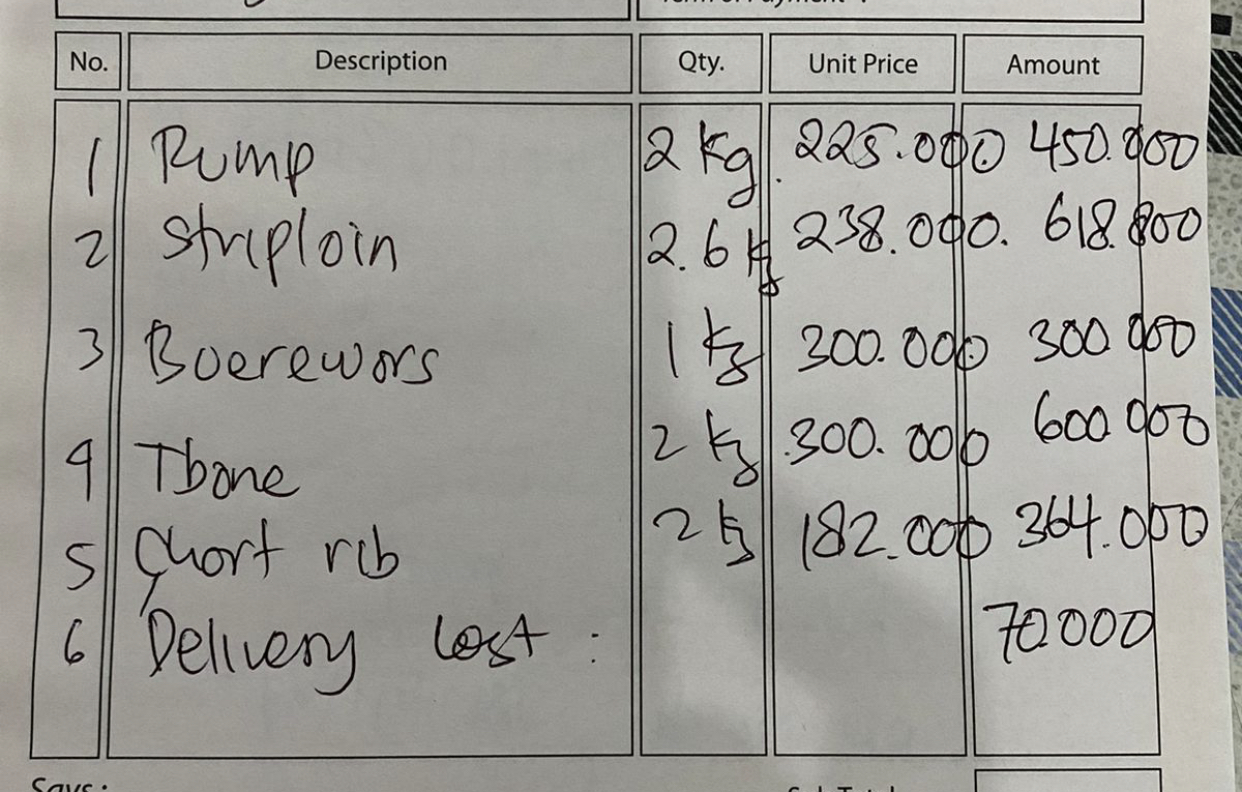 No. Description Qty. Unit Price Amount
1 Rump 2 kg. 225.000 450.000
2 Striploin 2.6 kg 238.000. 618.800
3 Boerewors 1 kg 300.000 300.000
4 Tbone 2 kg .300.000 600.000
5 Short rib 2 kg 182.000 364.000
6 Delivery Cost : 70.000